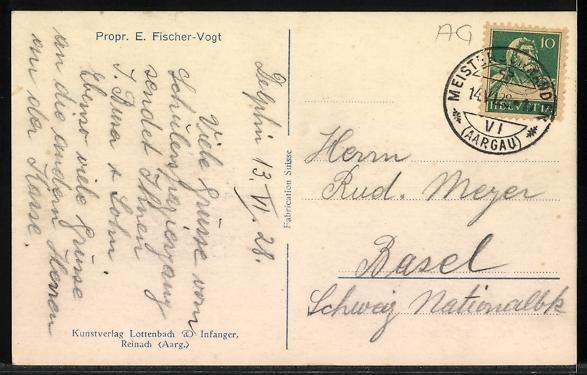 Propr. E. Fischer-Vogt
Delphin 13. VI. 28.
Viele Grüsse vom
Schülerspaziergang
sendet Ihnen
J. Buser & Sohn
Ebenso viele Grüsse
an die andern Herren
an der Kasse.
Kunstverlag Lottenbach & Infanger,
Reinach (Aarg.)
Fabrication Suisse
AG
10
HELVETIA
MEISTERSCHWANDEN
14.VI.28
VI
(AARGAU)
Herrn
Rud. Meyer
Basel
Schweiz Nationalbk